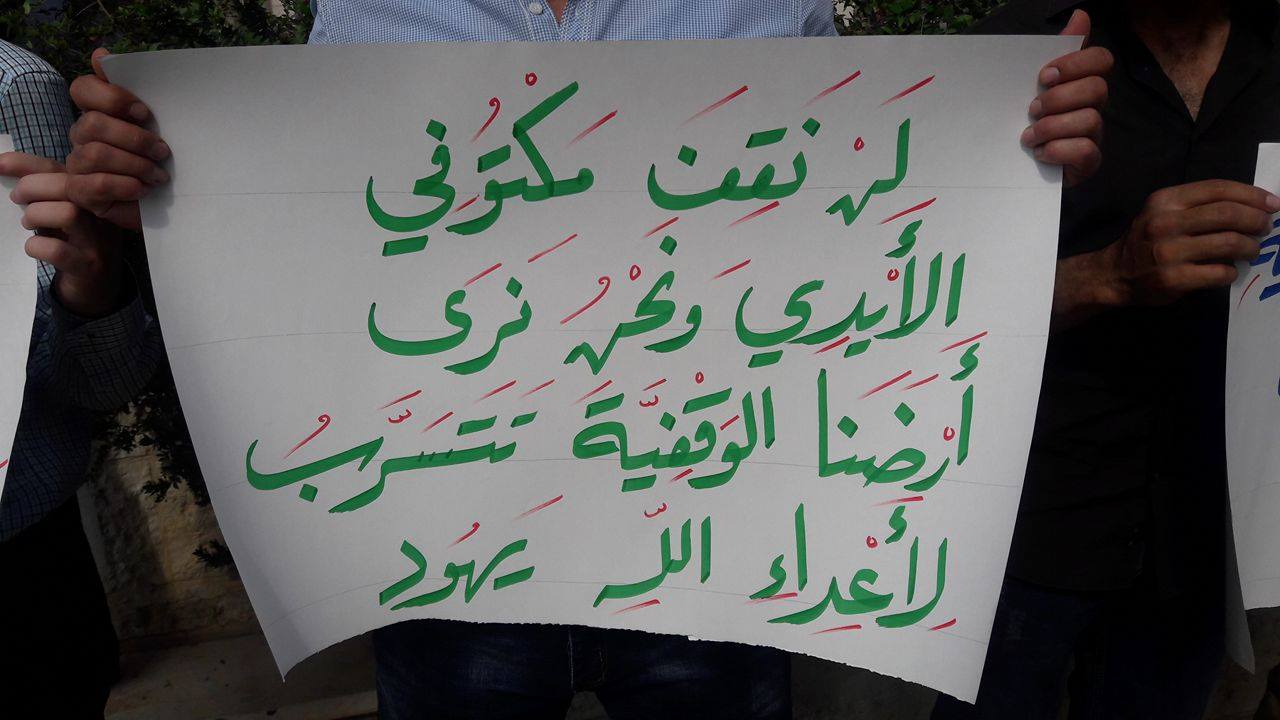 لَنْ نَقِفَ مَكْتُوُفِي
الأَيْدِي وَنَحْنُ نَرَى
أَرْضَنَا الوَقْفِيَّةَ تَتَسَرَّبُ
لِأَعْدَاءِ اللَّهِ يَهُودَ